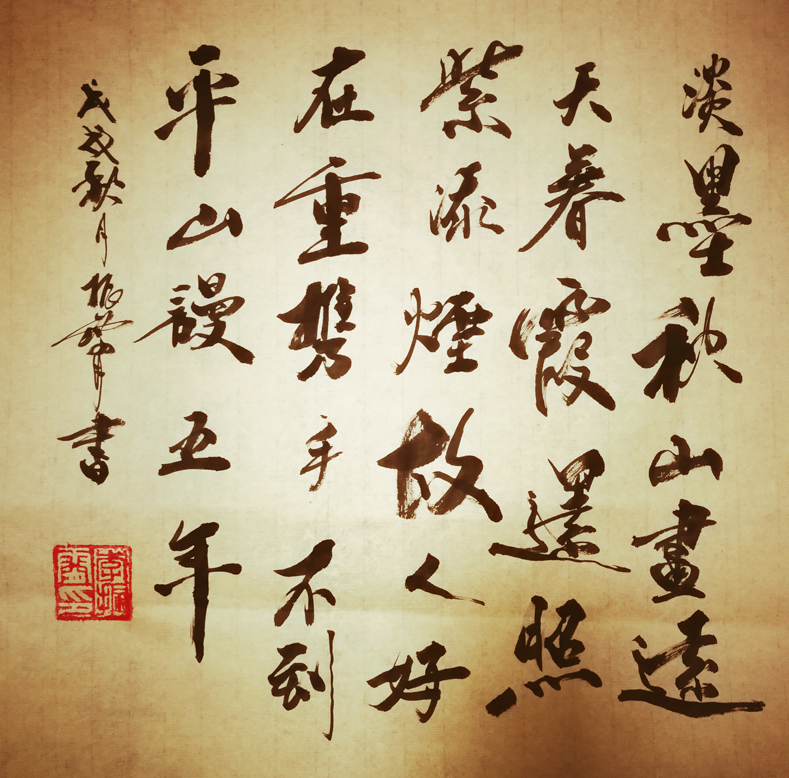 淡墨秋山畫遠
天暮霞還照
紫添煙故人好
在重携手不到
平山謾五年
戊戌秋月振書